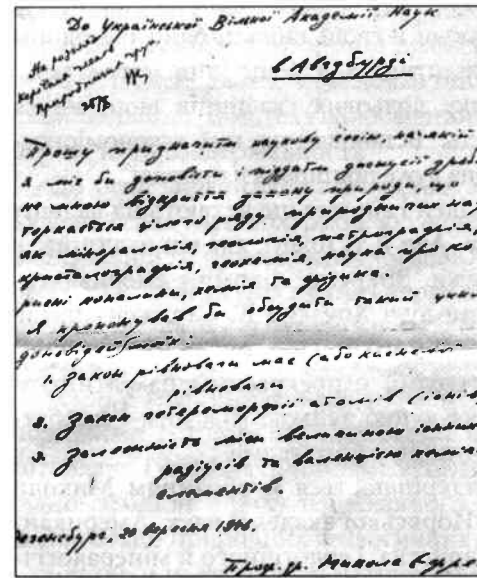 До Української Вільної Академії Наук
в Авґсбурзі
На розгляд
природничих груп
Прошу призначити наукову сесію, на якій
я міг би доповісти і піддати дискусії зробле
не мною відкриття закону природи, що
торкається цілого ряду природничих на
як мінералогія, геологія, петрографія,
кристалографія, геохемія, наука про ко
рисні копалини, хемія та фізика.
Я пропонував би обсудити такий цикл
доповідей моїх:
1. Закон рівноваги мас (або
рівноваги
2. Закон гетероморфії атомів (іонів
3. Залежність між величиною іонних
радіусів та валенцією хеміч
елементів.
Регенсбург, 20 вересня 1946.
Проф. др. Микола Єфре